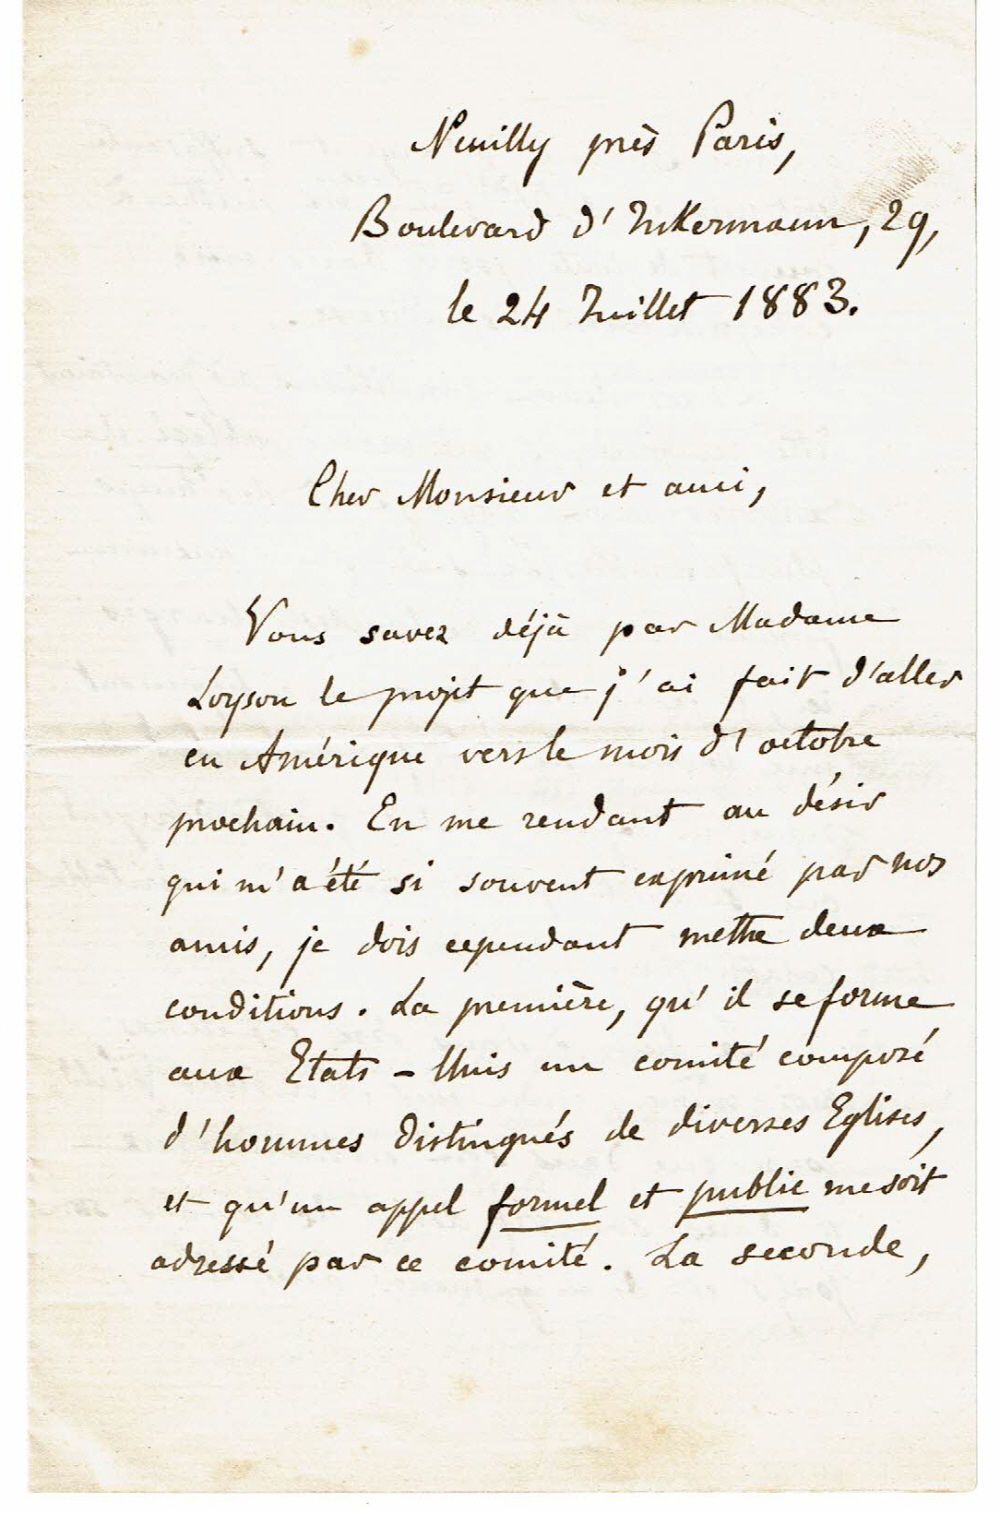 Neuilly près Paris,
Boulevard d'Inkermann, 29,
le 24 Juillet 1883.
Cher Monsieur et ami,
Vous savez déjà par Madame
Loyson le projet que j'ai fait d'aller
en Amérique vers le mois d'octobre
prochain. En me rendant au désir
qui m'a été si souvent exprimé par nos
amis, je dois cependant mettre deux
conditions. La première, qu'il se forme
aux Etats-Unis un comité composé
d'hommes distingués de diverses Eglises,
et qu'un appel formel et public me soit
adressé par ce comité. La seconde,